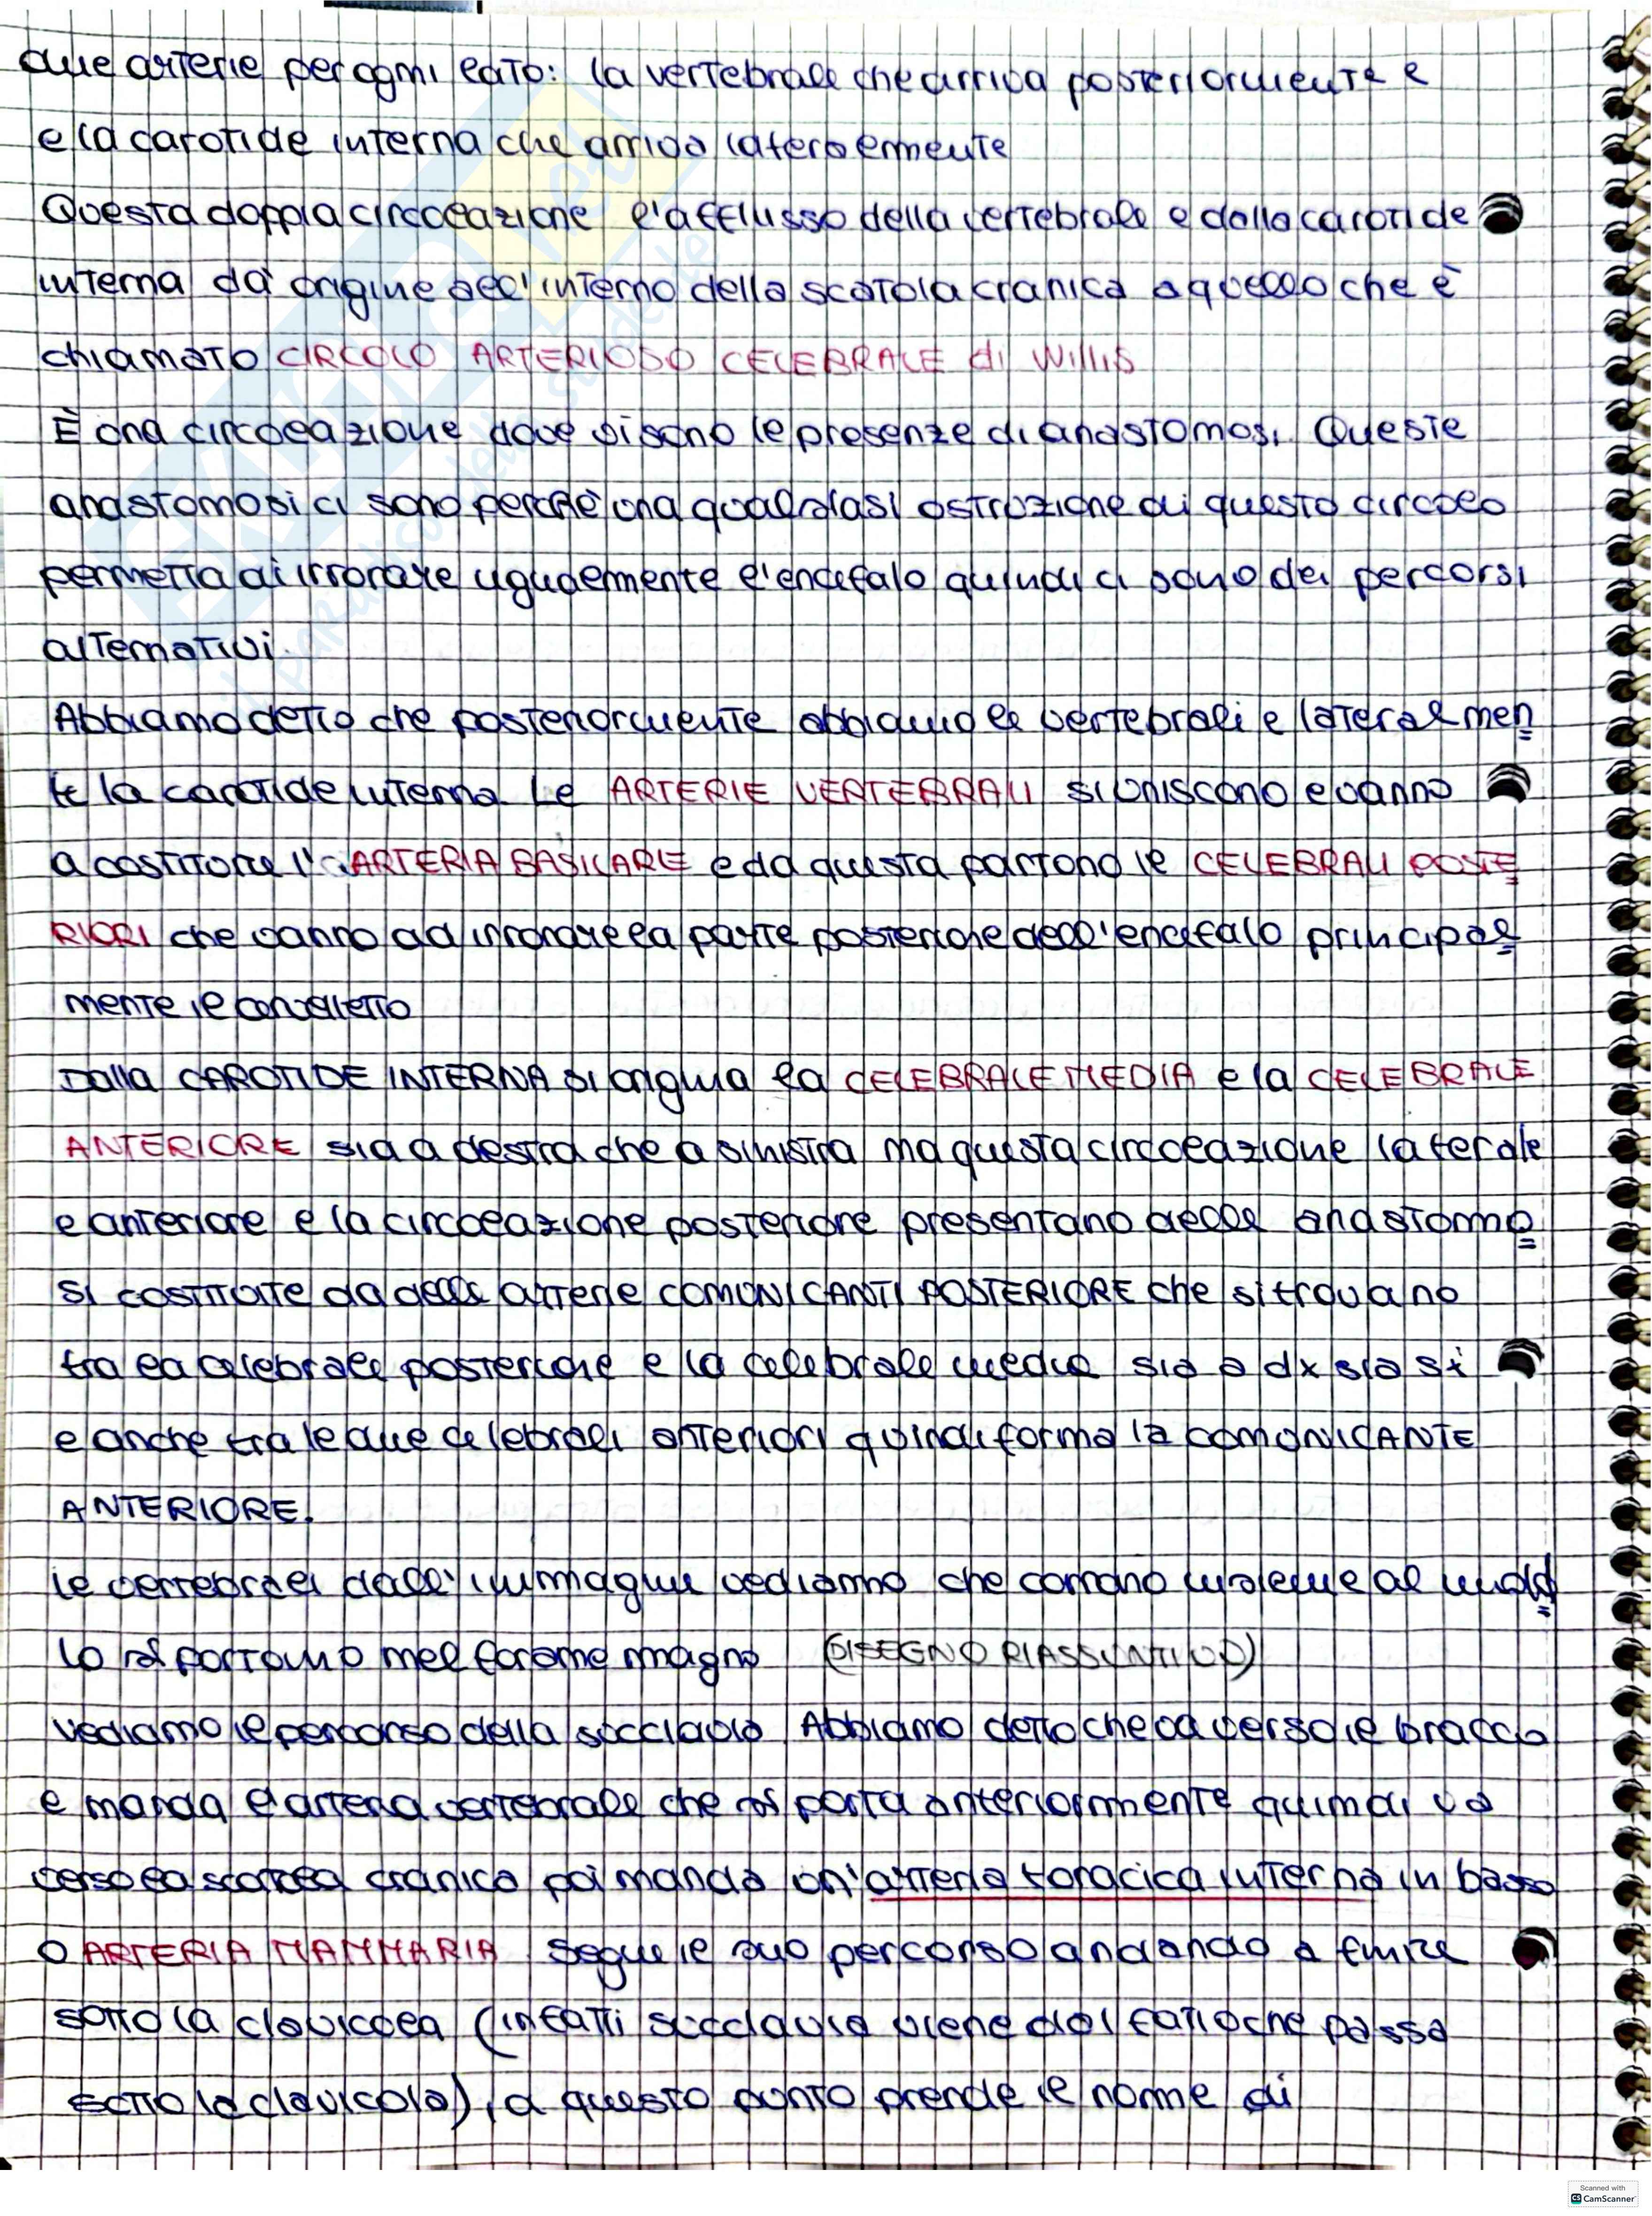 due arterie per ogni lato: la vertebrale che arriva posteriormente e
e la carotide interna che arriva lateralmente
Questa doppia circolazione l'afflusso della vertebrale e dalla carotide
interna da' origine all'interno della scatola cranica a quello che è
chiamato CIRCOLO ARTERIOSO CELEBRALE di Willis
È una circolazione dove vi sono le presenze di anastomosi. Queste
anastomosi ci sono perchè una qualsiasi ostruzione di questo circolo
permetta di irrorare ugualmente l'encefalo quindi ci sono dei percorsi
alternativi.
Abbiamo detto che posteriormente abbiamo le vertebrali e lateralmen
te la carotide interna. Le ARTERIE VERTEBRALI si uniscono e vanno
a costituire l'ARTERIA BASILARE e da questa partono le CELEBRALI POSTE
RIORI che vanno ad irrorare la parte posteriore dell'encefalo principal
mente il cervelletto
Dalla CAROTIDE INTERNA si origina la CELEBRALE MEDIA e la CELEBRALE
ANTERIORE sia a destra che a sinistra ma questa circolazione laterale
e anteriore e la circolazione posteriore presentano delle anastomo
si costituite da delle arterie COMUNICANTI POSTERIORE che si trovano
tra la celebrale posteriore e la celebrale media sia a dx sia sx
e anche tra le due celebrali anteriori quindi forma la COMUNICANTE
ANTERIORE.
le vertebrali dall'immagine vediamo che corrono insieme al midol
lo si portano nel forame magno (DISEGNO RIASSUNTIVO)
Vediamo il percorso della succlavia. Abbiamo detto che va verso il braccio
e manda l'arteria vertebrale che si porta anteriormente quindi va
verso la scatola cranica poi manda un'arteria toracica interna in basso
O ARTERIA MAMMARIA segue il suo percorso andando a finire
sotto la clavicola (infatti succlavia viene dal fatto che passa
sotto la clavicola), a questo punto prende il nome di
Scanned with
CS CamScanner